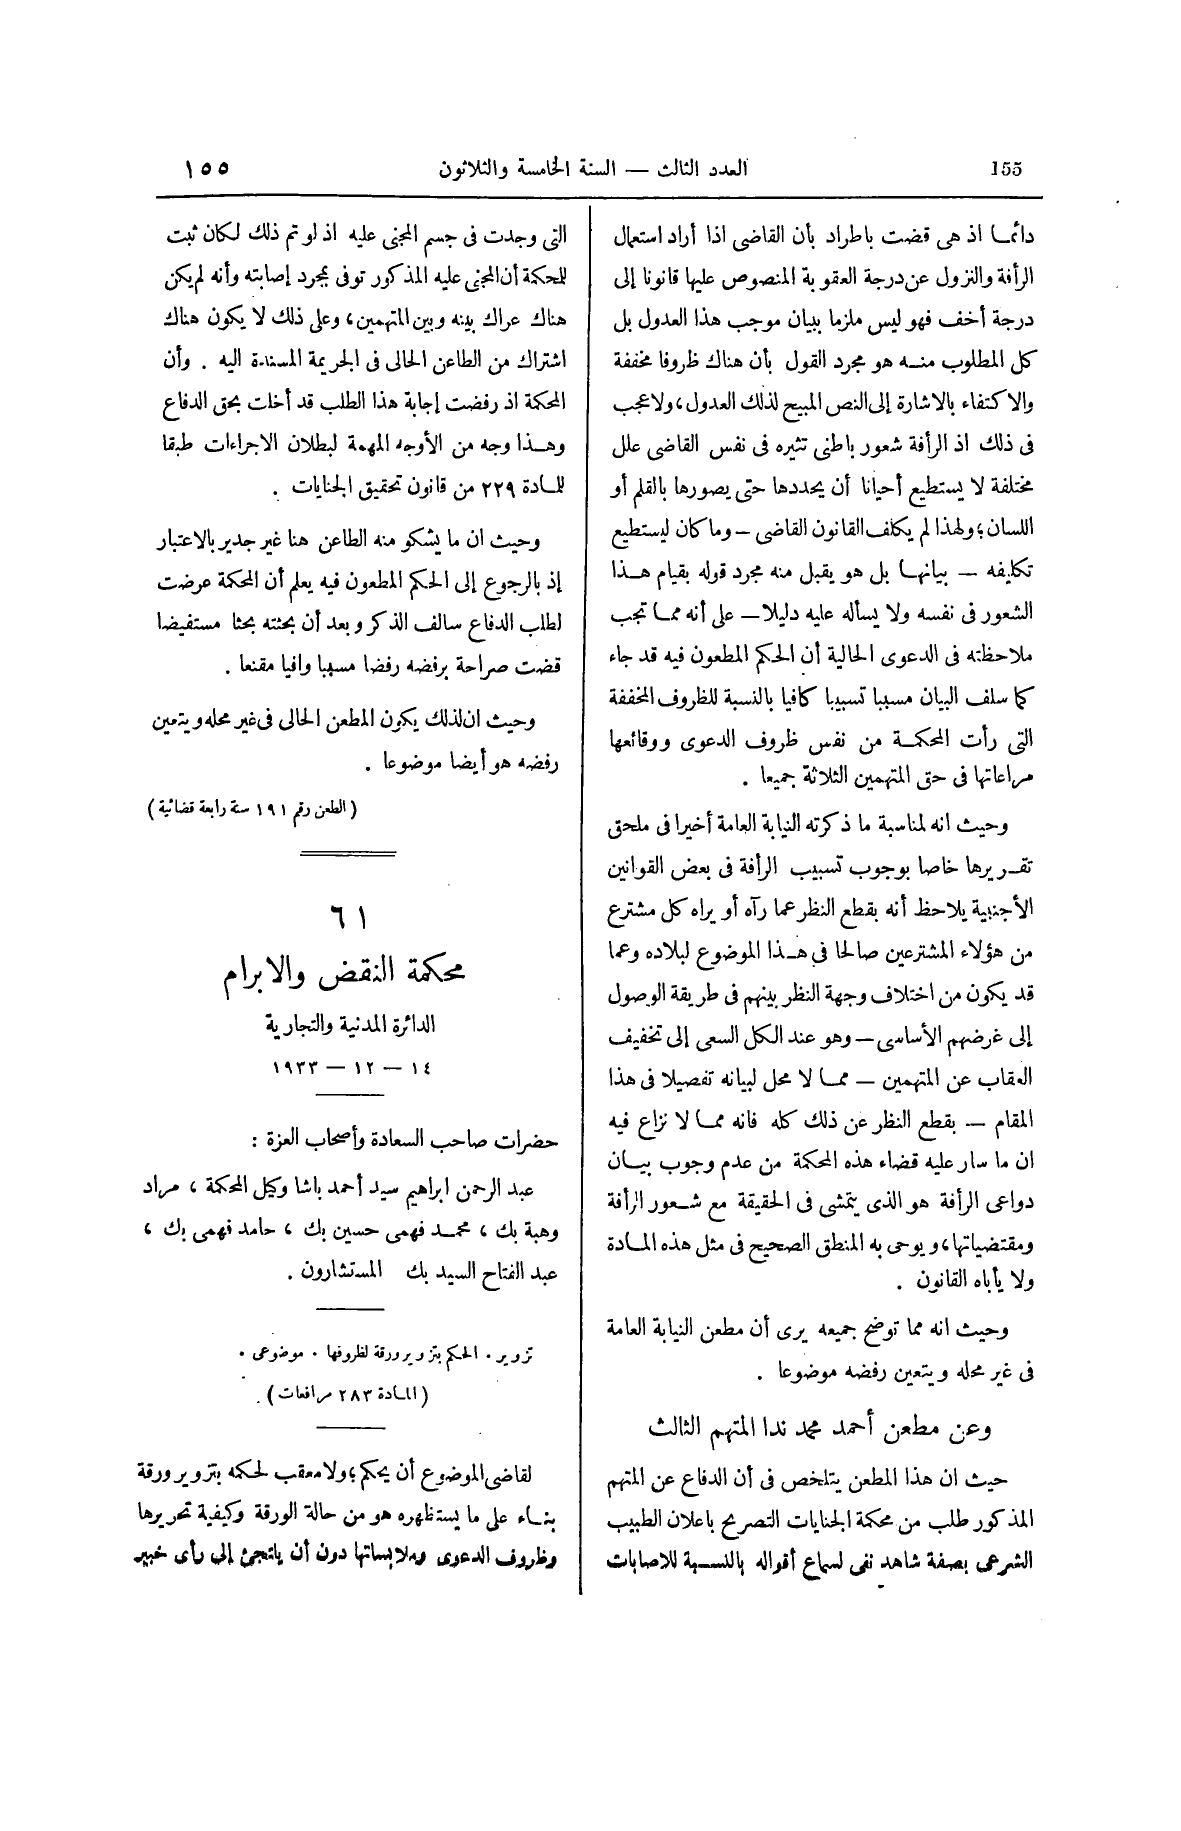 155
العدد الثالث — السنة الخامسة والثلاثون
١٥٥
دائما اذ هى قضت باطراد بأن القاضى اذا أراد استعمال
الرأفة والنزول عن درجة العقوبة المنصوص عليها قانونا إلى
درجة أخف فهو ليس ملزما ببيان موجب هذا العدول بل
كل المطلوب منه هو مجرد القول بأن هناك ظروفا مخففة
والاكتفاء بالاشارة إلى النص المبيح لذلك العدول، ولاعجب
فى ذلك اذ الرأفة شعور باطنى تثيره فى نفس القاضى علل
مختلفة لا يستطيع أحيانا أن يحددها حتى يصورها بالقلم أو
اللسان؛ ولهذا لم يكلف القانون القاضى – وما كان ليستطيع
تكليفه – بيانها بل هو يقبل منه مجرد قوله بقيام هذا
الشعور فى نفسه ولا يسأله عليه دليلا – على أنه مما تجب
ملاحظته فى الدعوى الحالية أن الحكم المطعون فيه قد جاء
كما سلف البيان مسببا تسبيبا كافيا بالنسبة للظروف المخففة
التى رأت المحكمة من نفس ظروف الدعوى ووقائعها
مراعاتها فى حق المتهمين الثلاثة جميعا .
وحيث انه لمناسبة ما ذكرته النيابة العامة أخيرا فى ملحق
تقريرها خاصا بوجوب تسبيب الرأفة فى بعض القوانين
الأجنبية يلاحظ أنه بقطع النظر عما رآه أو يراه كل مشترع
من هؤلاء المشترعين صالحا فى هذا الموضوع لبلاده وعما
قد يكون من اختلاف وجهة النظر بينهم فى طريقة الوصول
إلى غرضهم الأساسى – وهو عند الكل السعى إلى تخفيف
العقاب عن المتهمين – مما لا محل لبيانه تفصيلا فى هذا
المقام – بقطع النظر عن ذلك كله فانه مما لا نزاع فيه
ان ما سار عليه قضاء هذه المحكمة من عدم وجوب بيان
دواعى الرأفة هو الذى يتمشى فى الحقيقة مع شعور الرأفة
ومقتضياتها، ويوحى به المنطق الصحيح فى مثل هذه المادة
ولا يأباه القانون .
وحيث انه مما توضح جميعه يرى أن مطعن النيابة العامة
فى غير محله ويتعين رفضه موضوعا .
وعن مطعن أحمد محمد ندا المتهم الثالث
حيث ان هذا المطعن يتلخص فى أن الدفاع عن المتهم
المذكور طلب من محكمة الجنايات التصريح باعلان الطبيب
الشرعى بصفة شاهد نفى لسماع أقواله بالنسبة للاصابات
التى وجدت فى جسم المجنى عليه اذ لو تم ذلك لكان ثبت
للمحكمة أن المجنى عليه المذكور توفى بمجرد إصابته وأنه لم يكن
هناك عراك بينه وبين المتهمين، وعلى ذلك لا يكون هناك
اشتراك من الطاعن الحالى فى الجريمة المسندة اليه . وأن
المحكمة اذ رفضت إجابة هذا الطلب قد أخلت بحق الدفاع
وهذا وجه من الأوجه المهمة لبطلان الاجراءات طبقا
للمادة ٢٢٩ من قانون تحقيق الجنايات .
وحيث ان ما يشكو منه الطاعن هنا غير جدير بالاعتبار
إذ بالرجوع إلى الحكم المطعون فيه يعلم أن المحكمة عرضت
لطلب الدفاع سالف الذكر وبعد أن بحثته بحثا مستفيضا
قضت صراحة برفضه رفضا مسببا وافيا مقنعا .
وحيث ان لذلك يكون المطعن الحالى فى غير محله ويتعين
رفضه هو أيضا موضوعا .
( الطعن رقم ١٩١ سنة رابعة قضائية )
٦١
محكمة النقض والابرام
الدائرة المدنية والتجارية
١٤ – ١٢ – ١٩٣٣
حضرات صاحب السعادة وأصحاب العزة :
عبد الرحمن ابراهيم سيد أحمد باشا وكيل المحكمة ، مراد
وهبة بك ، محمد فهمى حسين بك ، حامد فهمى بك ،
عبد الفتاح السيد بك المستشارون .
تزوير . الحكم بتزوير ورقة لظروفها . موضوعى .
( المادة ٢٨٣ مرافعات ) .
لقاضى الموضوع أن يحكم، ولا معقب لحكمه بتزوير ورقة
بناء على ما يستظهره هو من حالة الورقة وكيفية تحريرها
وظروف الدعوى وملابساتها دون أن يلتجئ إلى رأى خبير